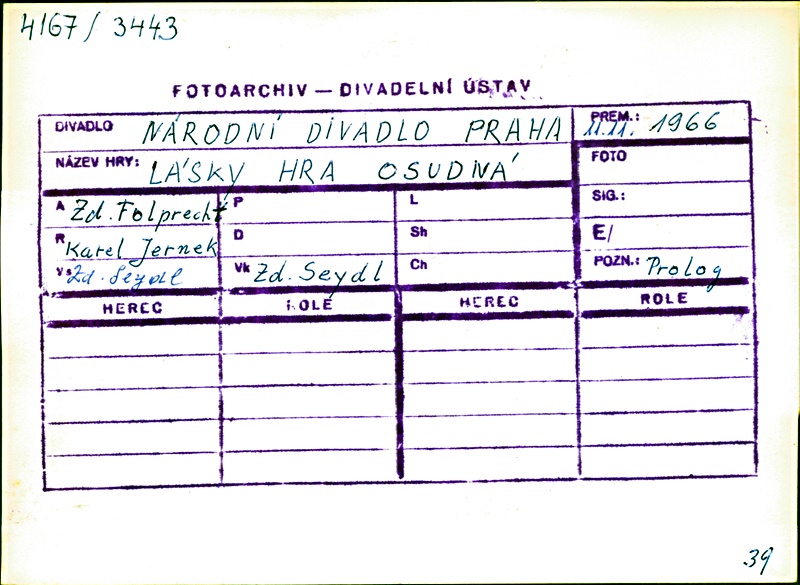 4167/3443
FOTOARCHIV — DIVADELNÍ ÚSTAV
DIVADLO NÁRODNÍ DIVADLO PRAHA PREM.: 11.11. 1966
NÁZEV HRY: LÁSKY HRA OSUDNÁ FOTO
A Zd. Folprecht P L SIG.:
R Karel Jernek D Sh E/
Vs Zd. Seydl Vk Zd. Seydl Ch POZN.: Prolog
HEREC ROLE HEREC ROLE
39